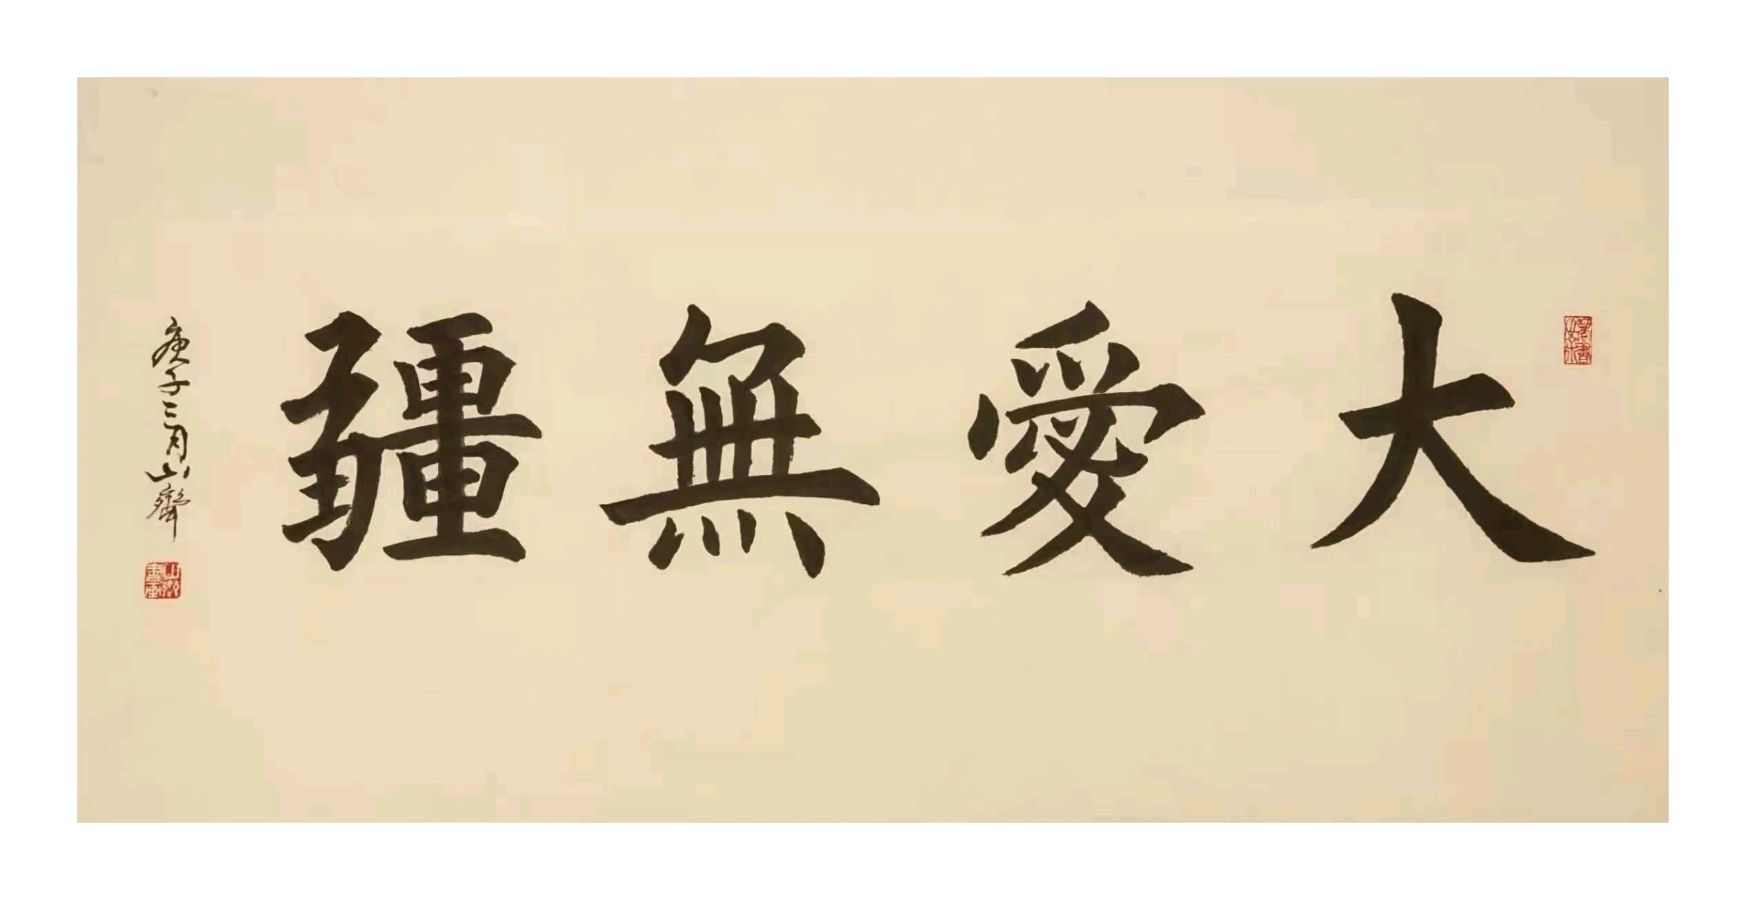 大愛無疆
庚子三月山齋